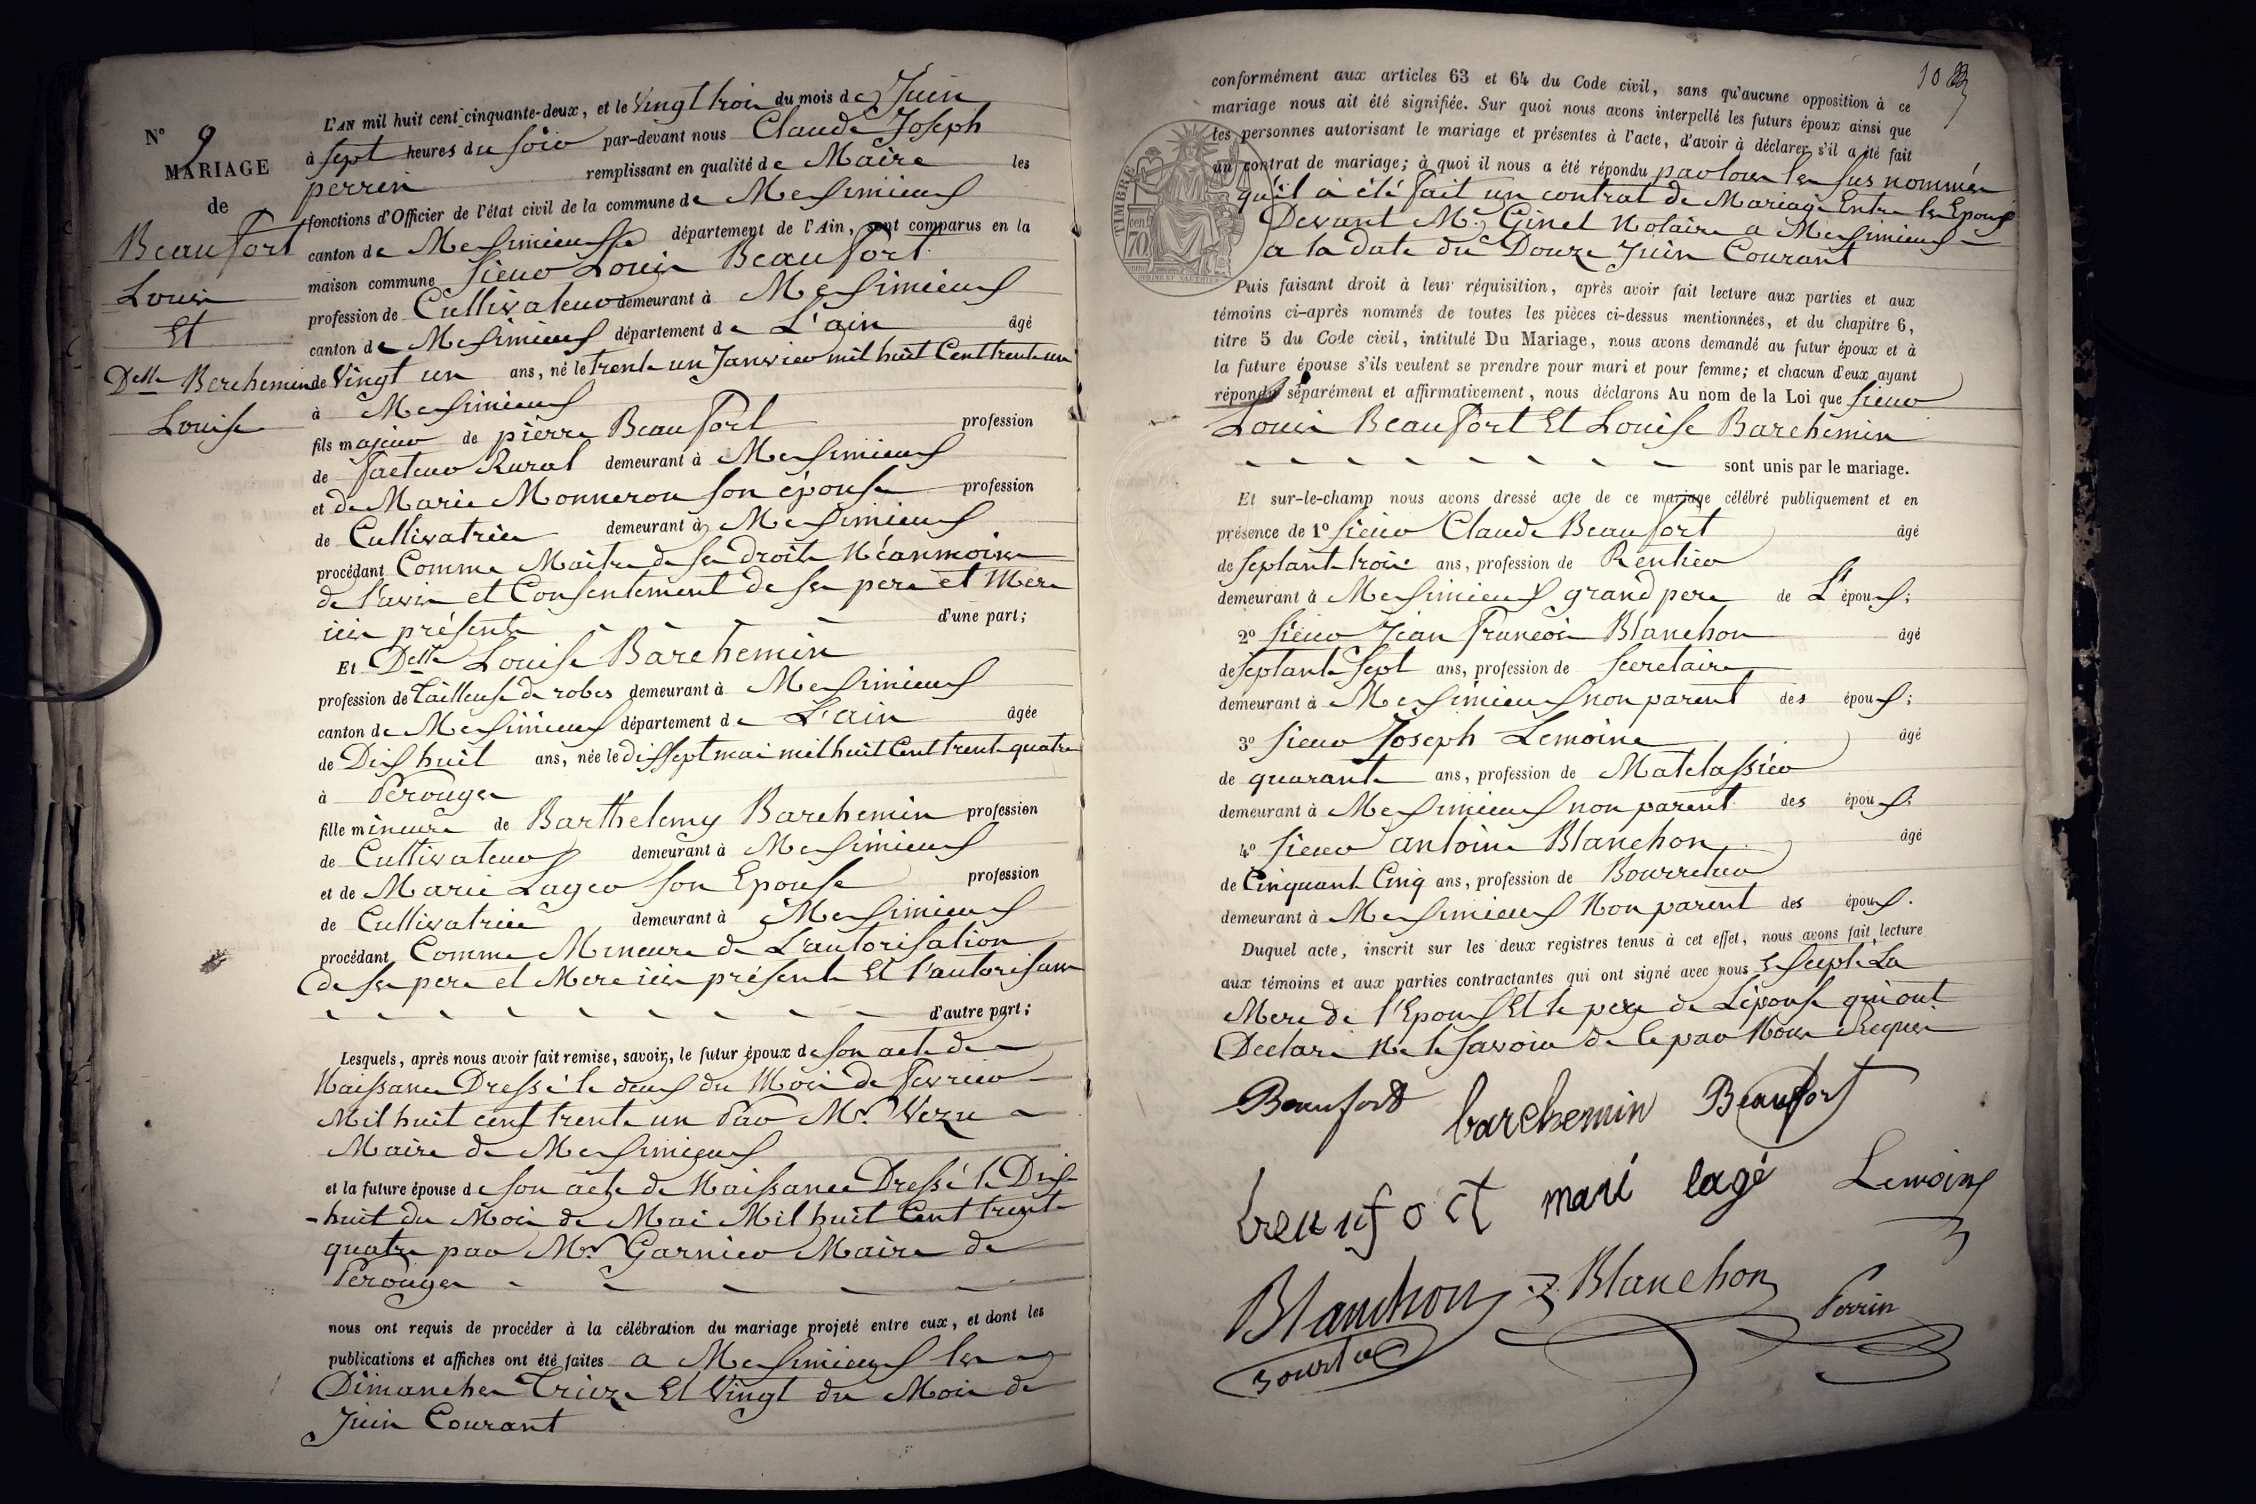 N° 9
MARIAGE
de
Beaufort
Louis
Et
Delle Barchemin
Louise
L'AN mil huit cent cinquante-deux, et le Vingt trois du mois de Juin
à sept heures du soir par-devant nous Claude Joseph
perrin remplissant en qualité de Maire les
fonctions d'Officier de l'état civil de la commune de Meximieux
canton de Meximieux département de l'Ain, sont comparus en la
maison commune Sieur Louis Beaufort
profession de Cultivateur demeurant à Meximieux
canton de Meximieux département de L'ain âgé
de Vingt un ans, né le trente un Janvier mil huit Cent trente un
à Meximieux
fils majeur de pierre Beaufort profession
de facteur Rural demeurant à Meximieux
et de Marie Monneron son épouse profession
de Cultivatrice demeurant à Meximieux
procédant Comme Maitre de ses droits Néanmoins
de l'avis et Consentement de ses pere et Mere
ici présents d'une part;
Et Delle Louise Barchemin
profession de tailleuse de robes demeurant à Meximieux
canton de Meximieux département de L'ain âgée
de Dix huit ans, née le dix sept mai mil huit Cent trente quatre
à Perouges
fille mineure de Barthelemy Barchemin profession
de Cultivateur demeurant à Meximieux
et de Marie Lager son Epouse profession
de Cultivatrice demeurant à Meximieux
procédant Comme Mineure de L'autorisation
de ses pere et Mere ici présents Et l'autorisant
d'autre part;
Lesquels, après nous avoir fait remise, savoir, le futur époux de son acte de
Naissance Dressé le deux du Mois de Fevrier
Mil huit cent trente un Par Mr. Vezu
Maire de Meximieux
et la future épouse de son acte de Naissance Dressé le Dix
-huit du Mois de Mai Mil huit Cent trente
quatre par Mr. Garnier Maire de
Perouges
nous ont requis de procéder à la célébration du mariage projeté entre eux, et dont les
publications et affiches ont été faites a Meximieux les
Dimanches Treize Et Vingt du Mois de
Juin Courant
conformément aux articles 63 et 64 du Code civil, sans qu'aucune opposition à ce
mariage nous ait été signifiée. Sur quoi nous avons interpellé les futurs époux ainsi que
les personnes autorisant le mariage et présentes à l'acte, d'avoir à déclarer s'il a été fait
un contrat de mariage; à quoi il nous a été répondu par tous les sus nommés
qu'il a été fait un contrat de Mariage Entre les Epoux
Devant Me. Ginet Notaire a Meximieux
a la date du Douze Juin Courant
TIMBRE
70
Puis faisant droit à leur réquisition, après avoir fait lecture aux parties et aux
témoins ci-après nommés de toutes les pièces ci-dessus mentionnées, et du chapitre 6,
titre 5 du Code civil, intitulé Du Mariage, nous avons demandé au futur époux et à
la future épouse s'ils veulent se prendre pour mari et pour femme; et chacun d'eux ayant
répondu séparément et affirmativement, nous déclarons Au nom de la Loi que Sieur
Louis Beaufort Et Louise Barchemin
sont unis par le mariage.
Et sur-le-champ nous avons dressé acte de ce mariage célébré publiquement et en
présence de 1° Sieur Claude Beaufort âgé
de septante trois ans, profession de Rentier
demeurant à Meximieux grand pere de L'époux;
2° Sieur Jean François Blanchon âgé
de septante sept ans, profession de Secretaire
demeurant à Meximieux non parent des époux;
3° Sieur Joseph Lemoine âgé
de quarante ans, profession de Matelassier
demeurant à Meximieux non parent des époux.
4° Sieur antoine Blanchon âgé
de Cinquante Cinq ans, profession de Bourrelier
demeurant à Meximieux Non parent des époux.
Duquel acte, inscrit sur les deux registres tenus à cet effet, nous avons fait lecture
aux témoins et aux parties contractantes qui ont signé avec nous Excepté La
Mere de l'Epoux Et le pere de L'épouse qui ont
Declaré Ne le savoir de ce par Nous Requis
Beaufort barchemin Beaufort
beaufort mari lagé Lemoine
Blanchon Blanchon Perrin